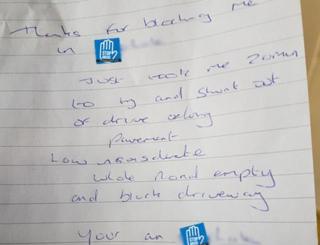 Thanks for blocking me
in
Just took me 20min
to try and shunt out
or drive along
pavement
How inconsiderate
whole road empty
and block driveway
Your an